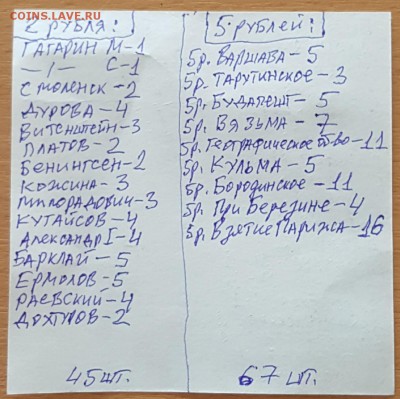 COINS.LAVE.RU
2 РУБЛЯ:
ГАГАРИН М-1
-/- С-1
СМОЛЕНСК-2
ДУРОВА-4
ВИТГЕНШТЕЙН-3
ПЛАТОВ-2
БЕНИНГСЕН-2
КОЖИНА-3
МИЛОРАДОВИЧ-3
КУТАЙСОВ-4
АЛЕКСАНДР I-4
БАРКЛАЙ-5
ЕРМОЛОВ-5
РАЕВСКИЙ-4
ДОХТУРОВ-2
45 ШТ.
5 РУБЛЕЙ:
5р. ВАРШАВА-5
5р. ТАРУТИНСКОЕ-3
5р. БУДАПЕШТ-5
5р. ВЯЗЬМА-7
5р. ГЕОГРАФИЧЕСКОЕ ОБ-ВО-11
5р. КУЛЬМА-5
5р. БОРОДИНСКОЕ-11
5р. ПРИ БЕРЕЗИНЕ-4
5р. ВЗЯТИЕ ПАРИЖА-16
67 ШТ.